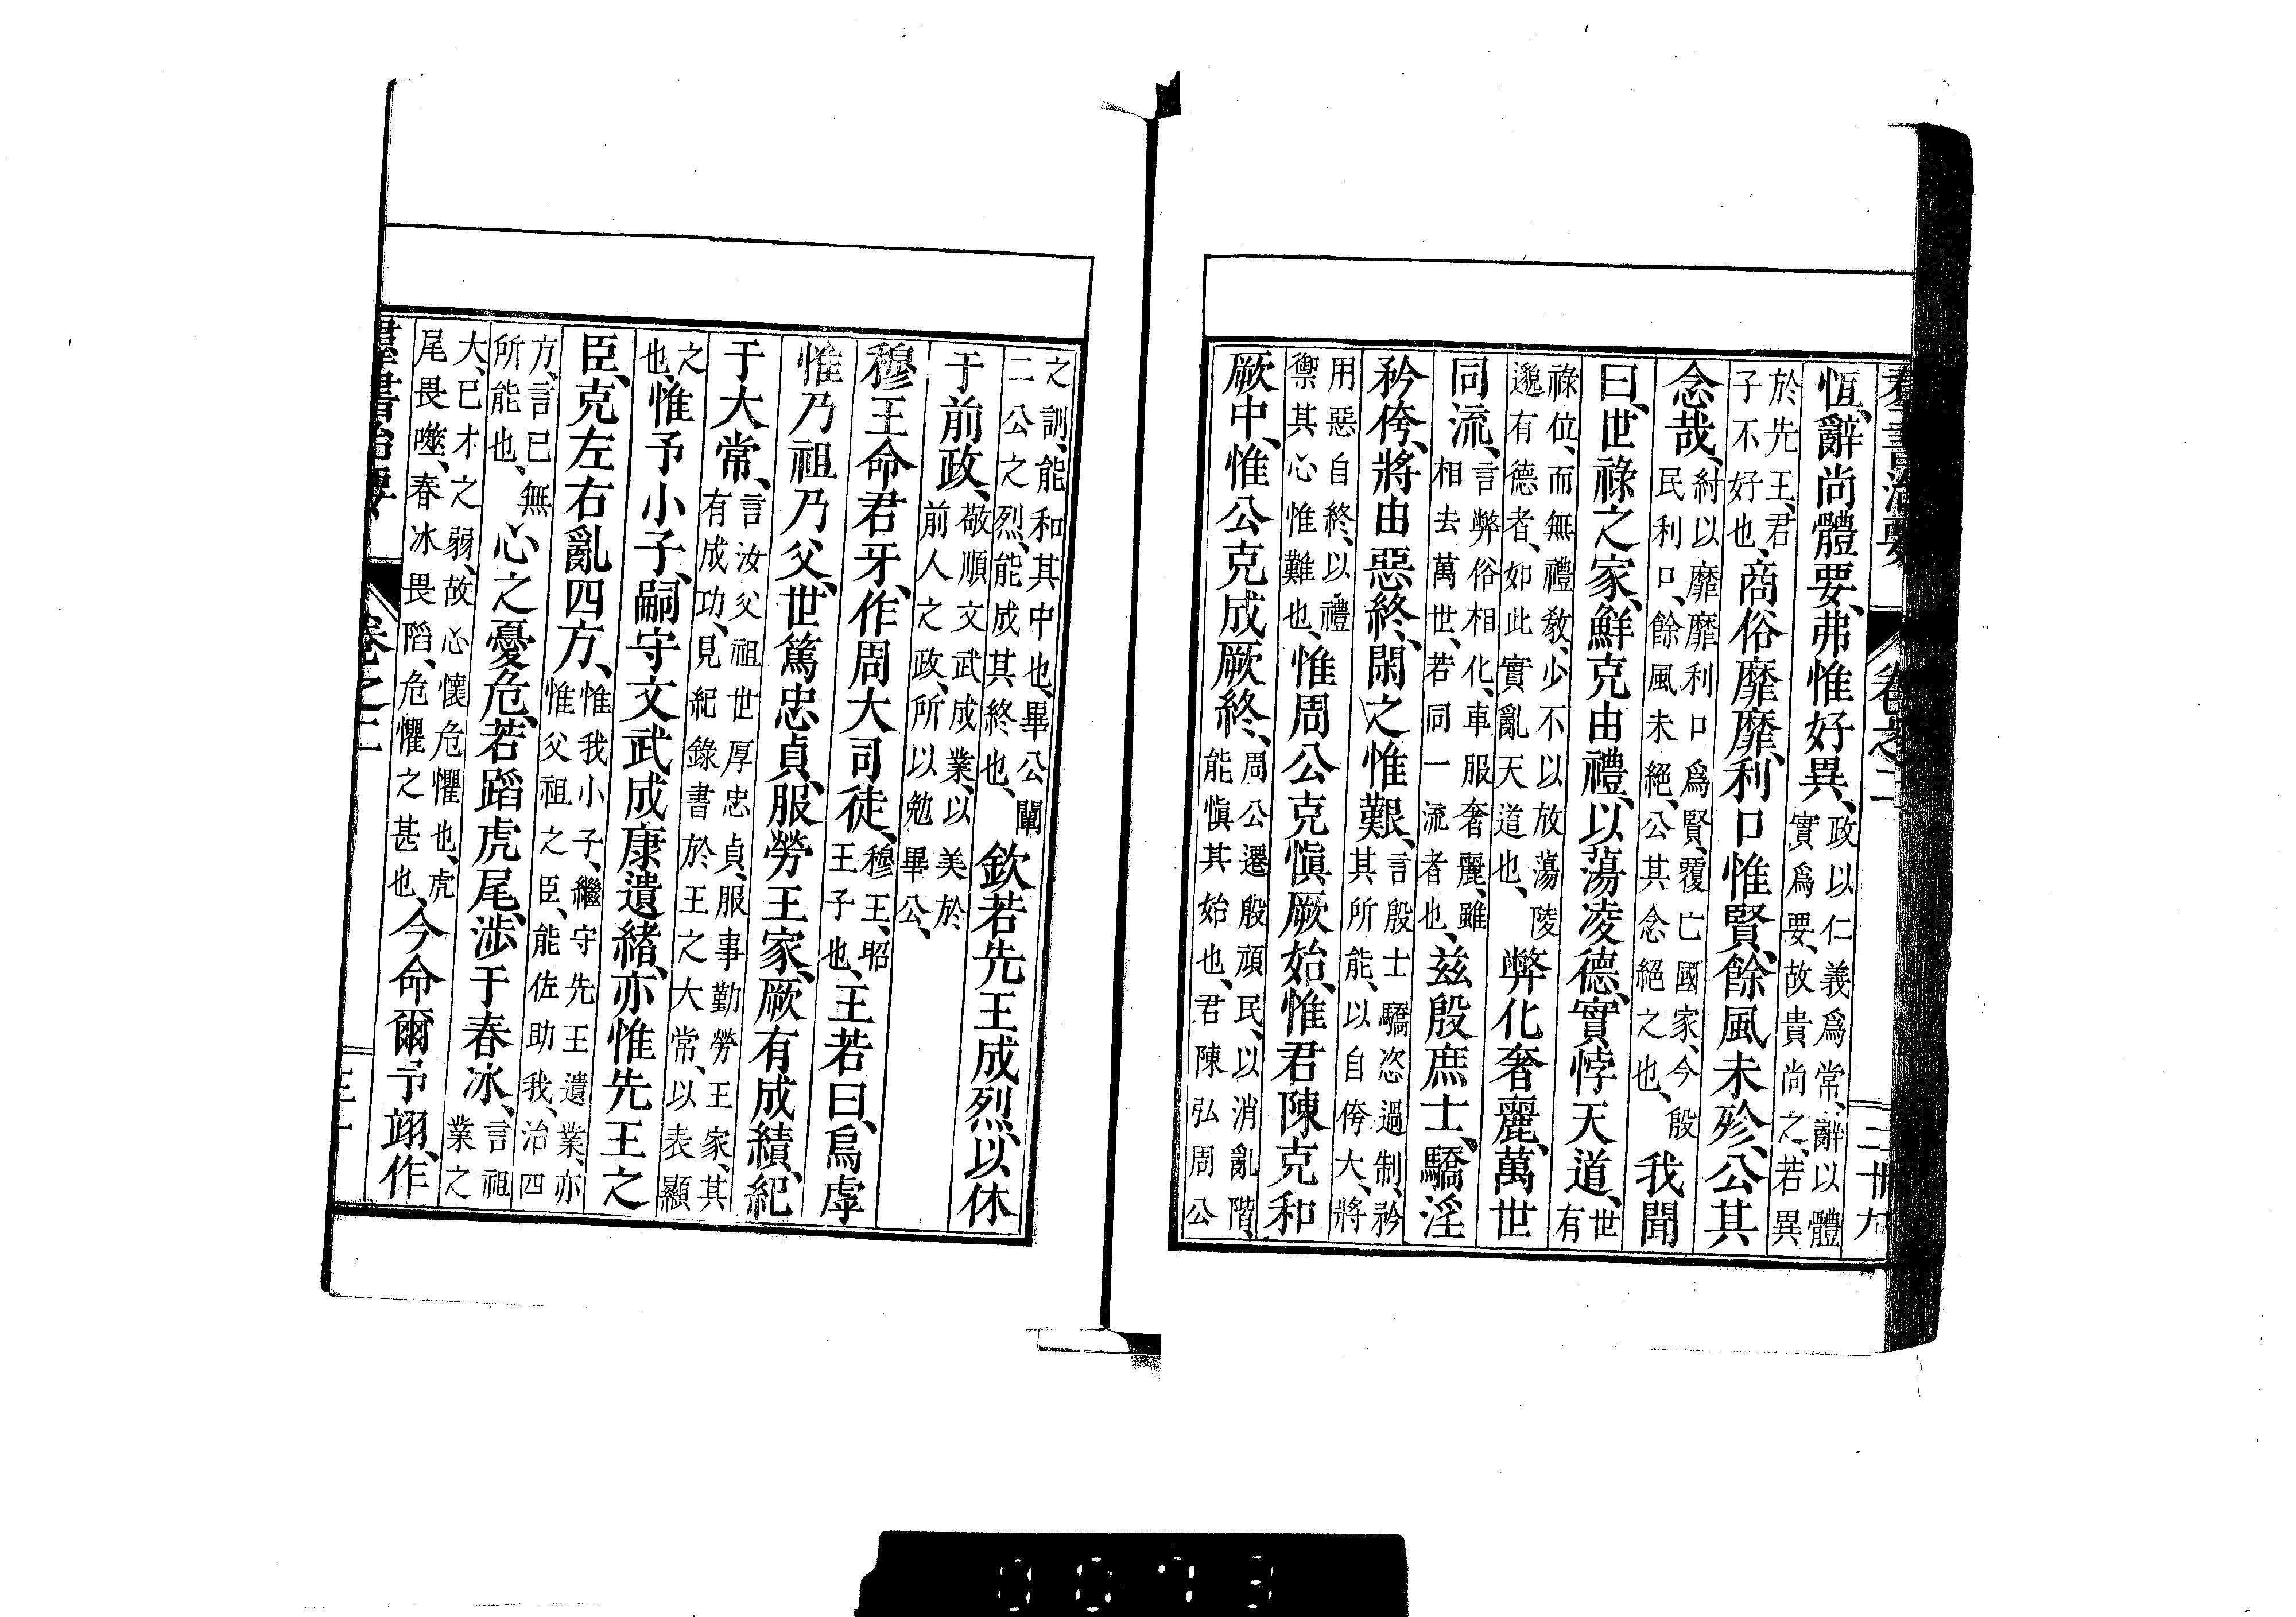 羣書治要 卷之二 二十九
恆、辭尚體要、弗惟好異、政以仁義爲常、辭以體實爲要、故貴尚之、若異
於先王、君子不好也、商俗靡靡、利口惟賢、餘風未殄、公其
念哉、紂以靡靡利口爲賢、覆亡國家、今殷民利口、餘風未絕、公其念絕之也、我聞
曰、世祿之家、鮮克由禮、以蕩凌德、實悖天道、世有
祿位、而無禮教、少不以放蕩陵邈有德者、如此實亂天道也、弊化奢麗、萬世
同流、言弊俗相化、車服奢麗、雖相去萬世、若同一流者也、茲殷庶士、驕淫
矜侉、將由惡終、閑之惟艱、言殷士驕恣過制、矜其所能、以自侉大、將
用惡自終、以禮禦其心惟難也、惟周公克愼厥始、惟君陳克和
厥中、惟公克成厥終、周公遷殷頑民、以消亂階、能愼其始也、君陳弘周公
之訓、能和其中也、畢公闡二公之烈、能成其終也、欽若先王成烈、以休
于前政、敬順文武成業、以美於前人之政、所以勉畢公、
穆王命君牙、作周大司徒、穆王、昭王子也、王若曰、烏虖
惟乃祖乃父、世篤忠貞、服勞王家、厥有成績、紀
于大常、言汝父祖世厚忠貞、服事勤勞王家、其有成功、見紀錄書於王之大常、以表顯
之也、惟予小子、嗣守文武成康遺緒、亦惟先王之
臣、克左右亂四方、惟我小子、繼守先王遺業、亦惟父祖之臣、能佐助我、治四
方、言已無所能也、心之憂危、若蹈虎尾、涉于春冰、言祖業之
大、已才之弱、故心懷危懼也、虎尾畏噬、春冰畏陷、危懼之甚也、今命爾予翊、作
羣書治要 卷之二 三十